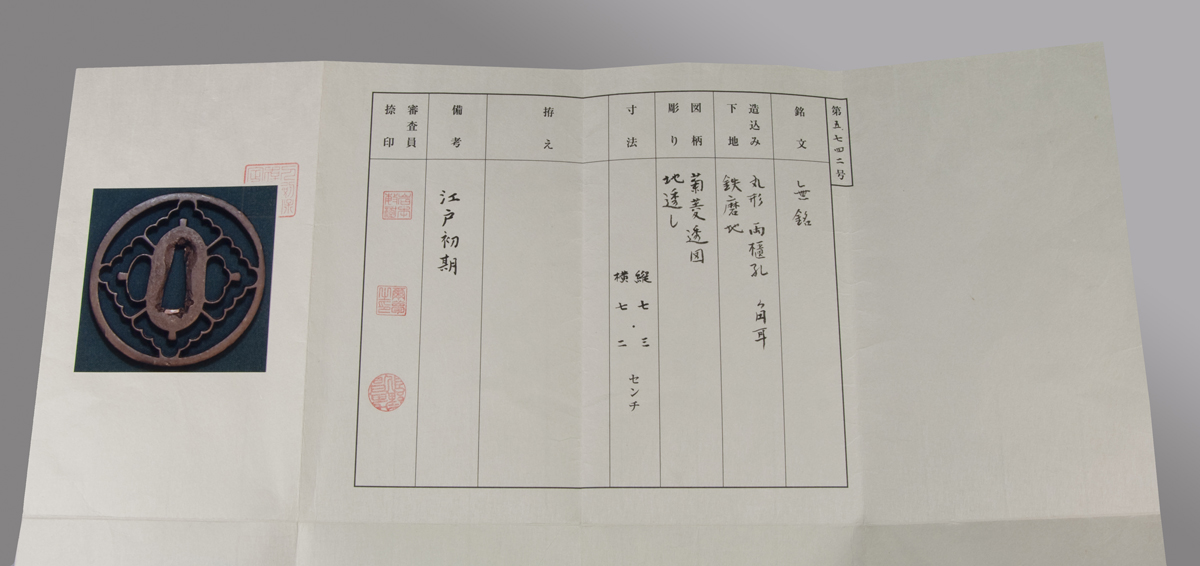 第五七四二号
銘文
無銘
造込み
下地
丸形 両櫃孔 角耳
鉄磨地
図柄
彫り
菊菱透図
地透し
寸法
縦 七・三
横 七・二
センチ
拵え
備考
江戸初期
審査員
捺印